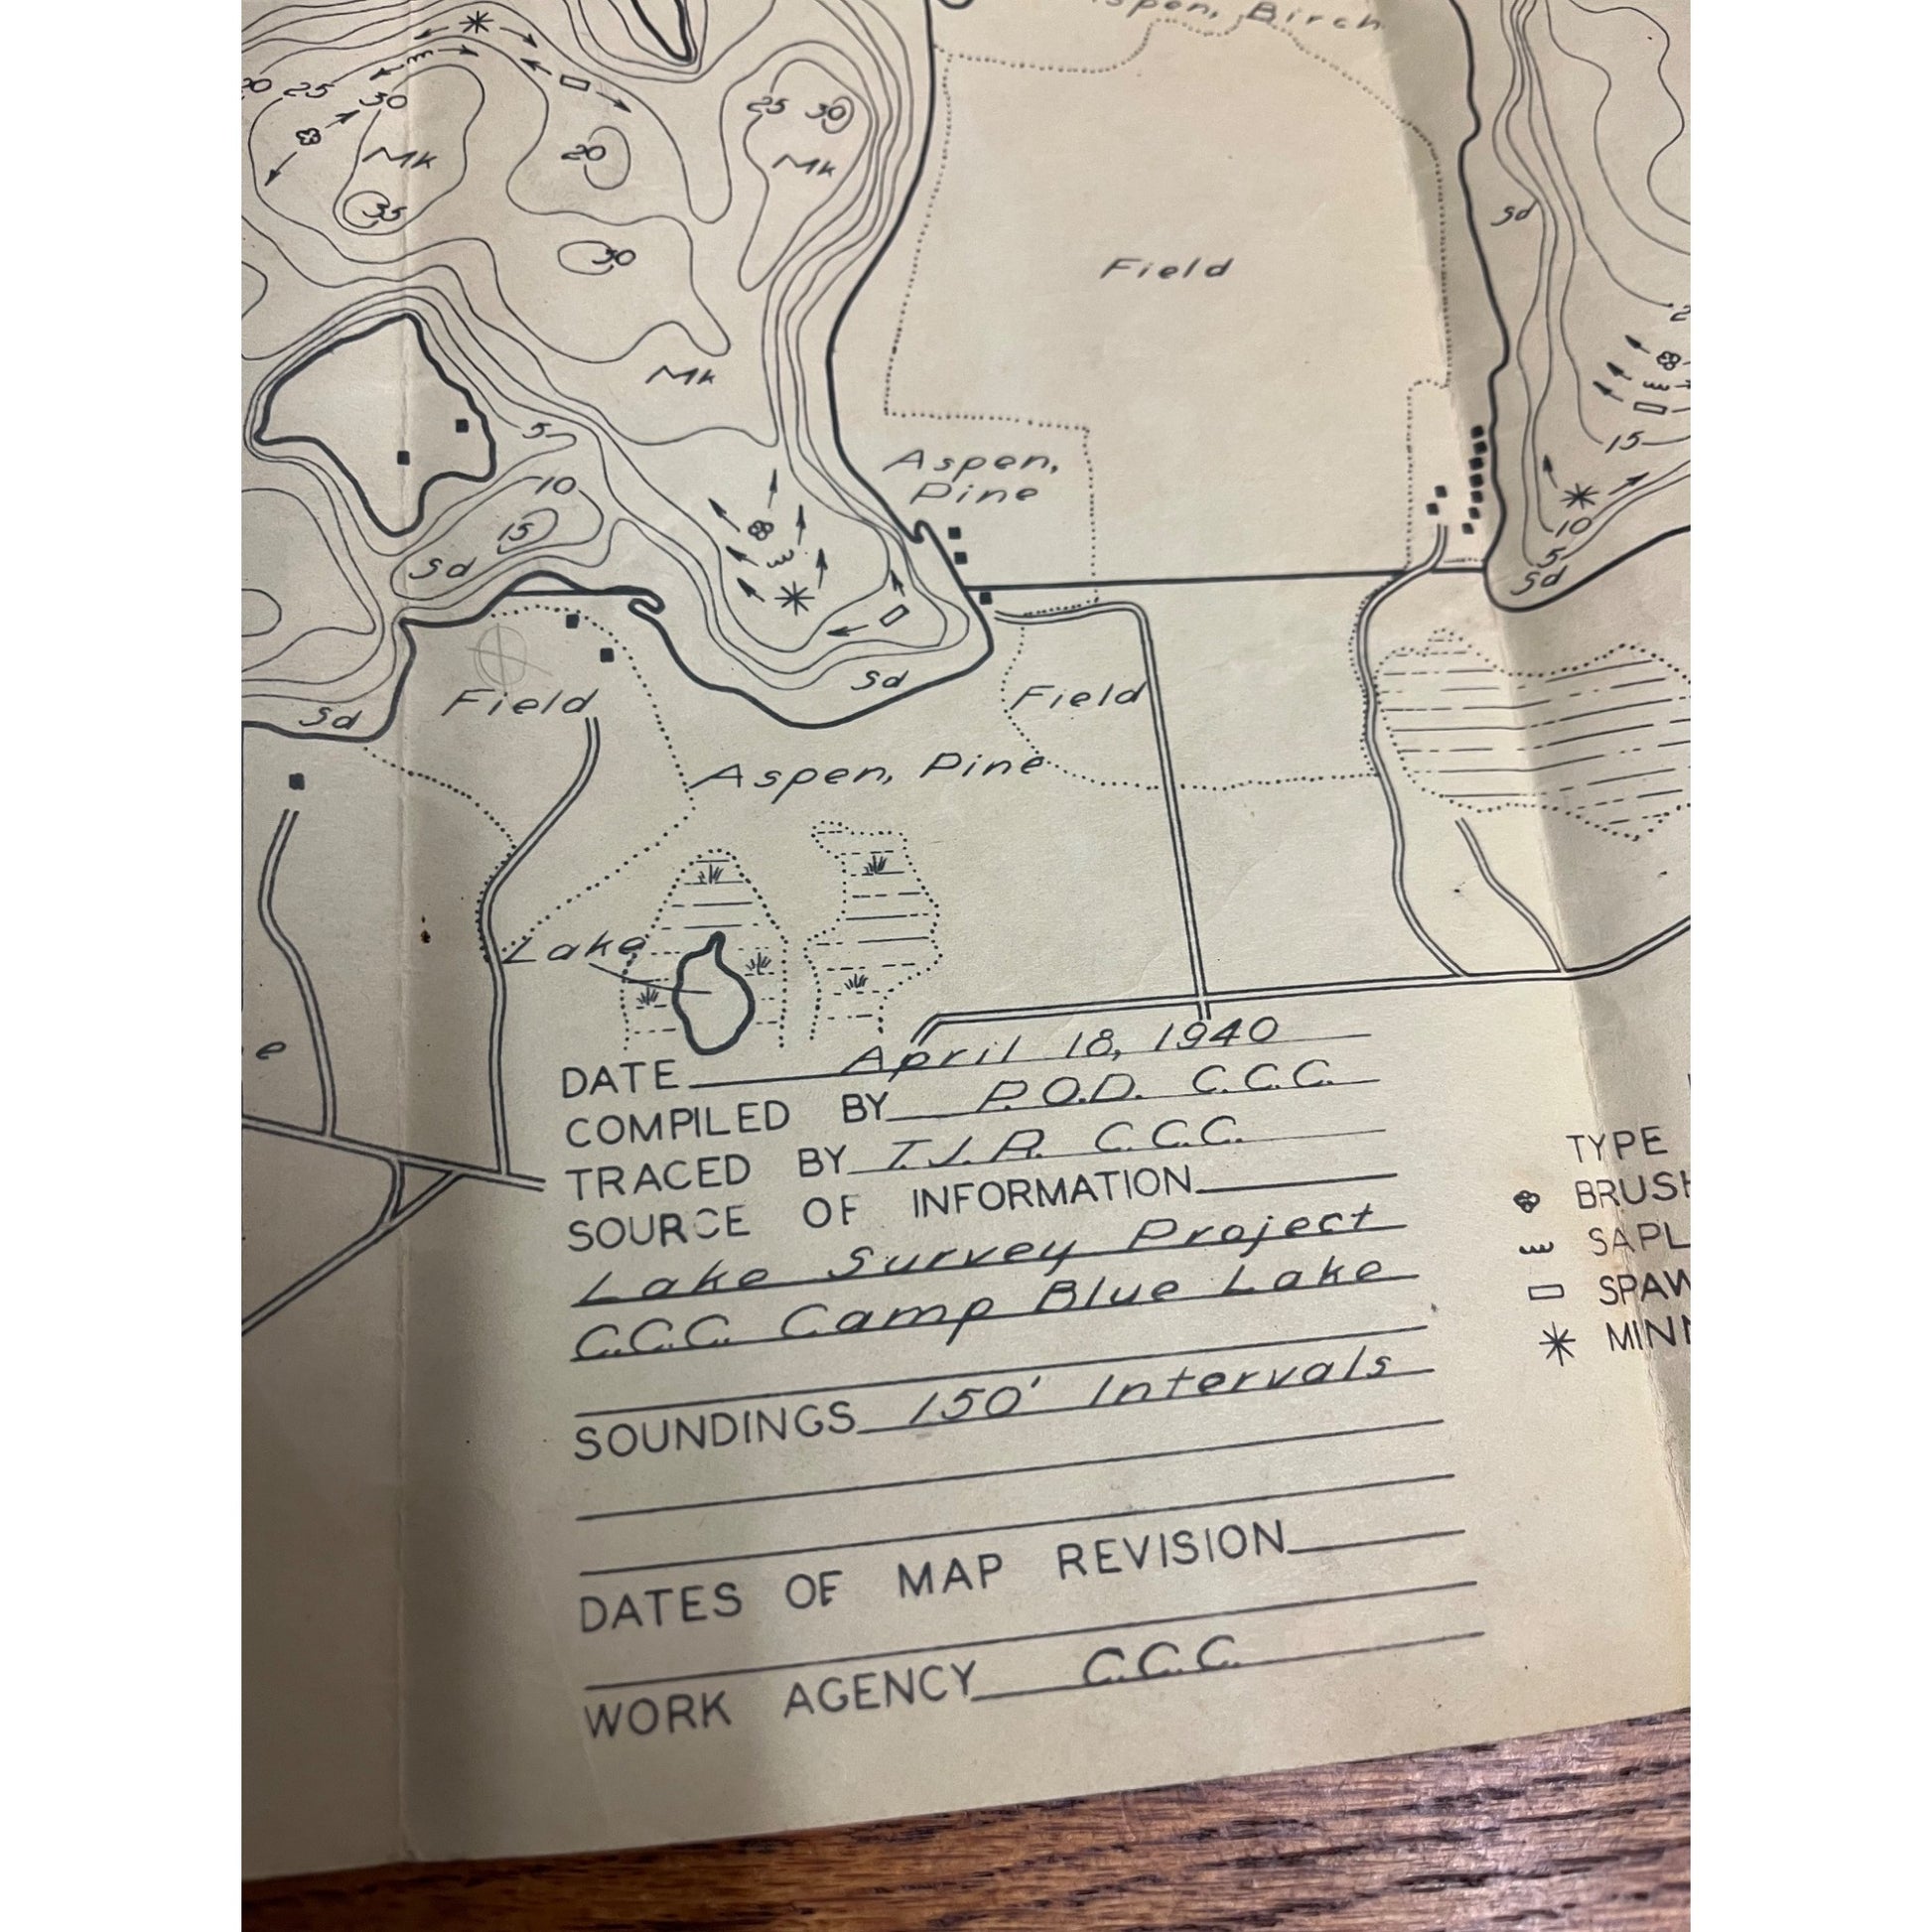 Aspen, Birch
20 25 30
25 30
Mk
20
Mk
35
Sd
30
Field
Mk
5
15
Aspen,
Pine
10
15
Sd
10
5
Sd
Sd
Field
Field
Sd
Aspen, Pine
Lake
e
DATE April 18, 1940
COMPILED BY P.O.D. C.C.C.
TRACED BY T.J.R. C.C.C.
SOURCE OF INFORMATION
Lake Survey Project
C.C.C. Camp Blue Lake
SOUNDINGS 150' Intervals
DATES OF MAP REVISION
WORK AGENCY C.C.C.
TYPE
BRUSH
SAPL
SPAW
MINN